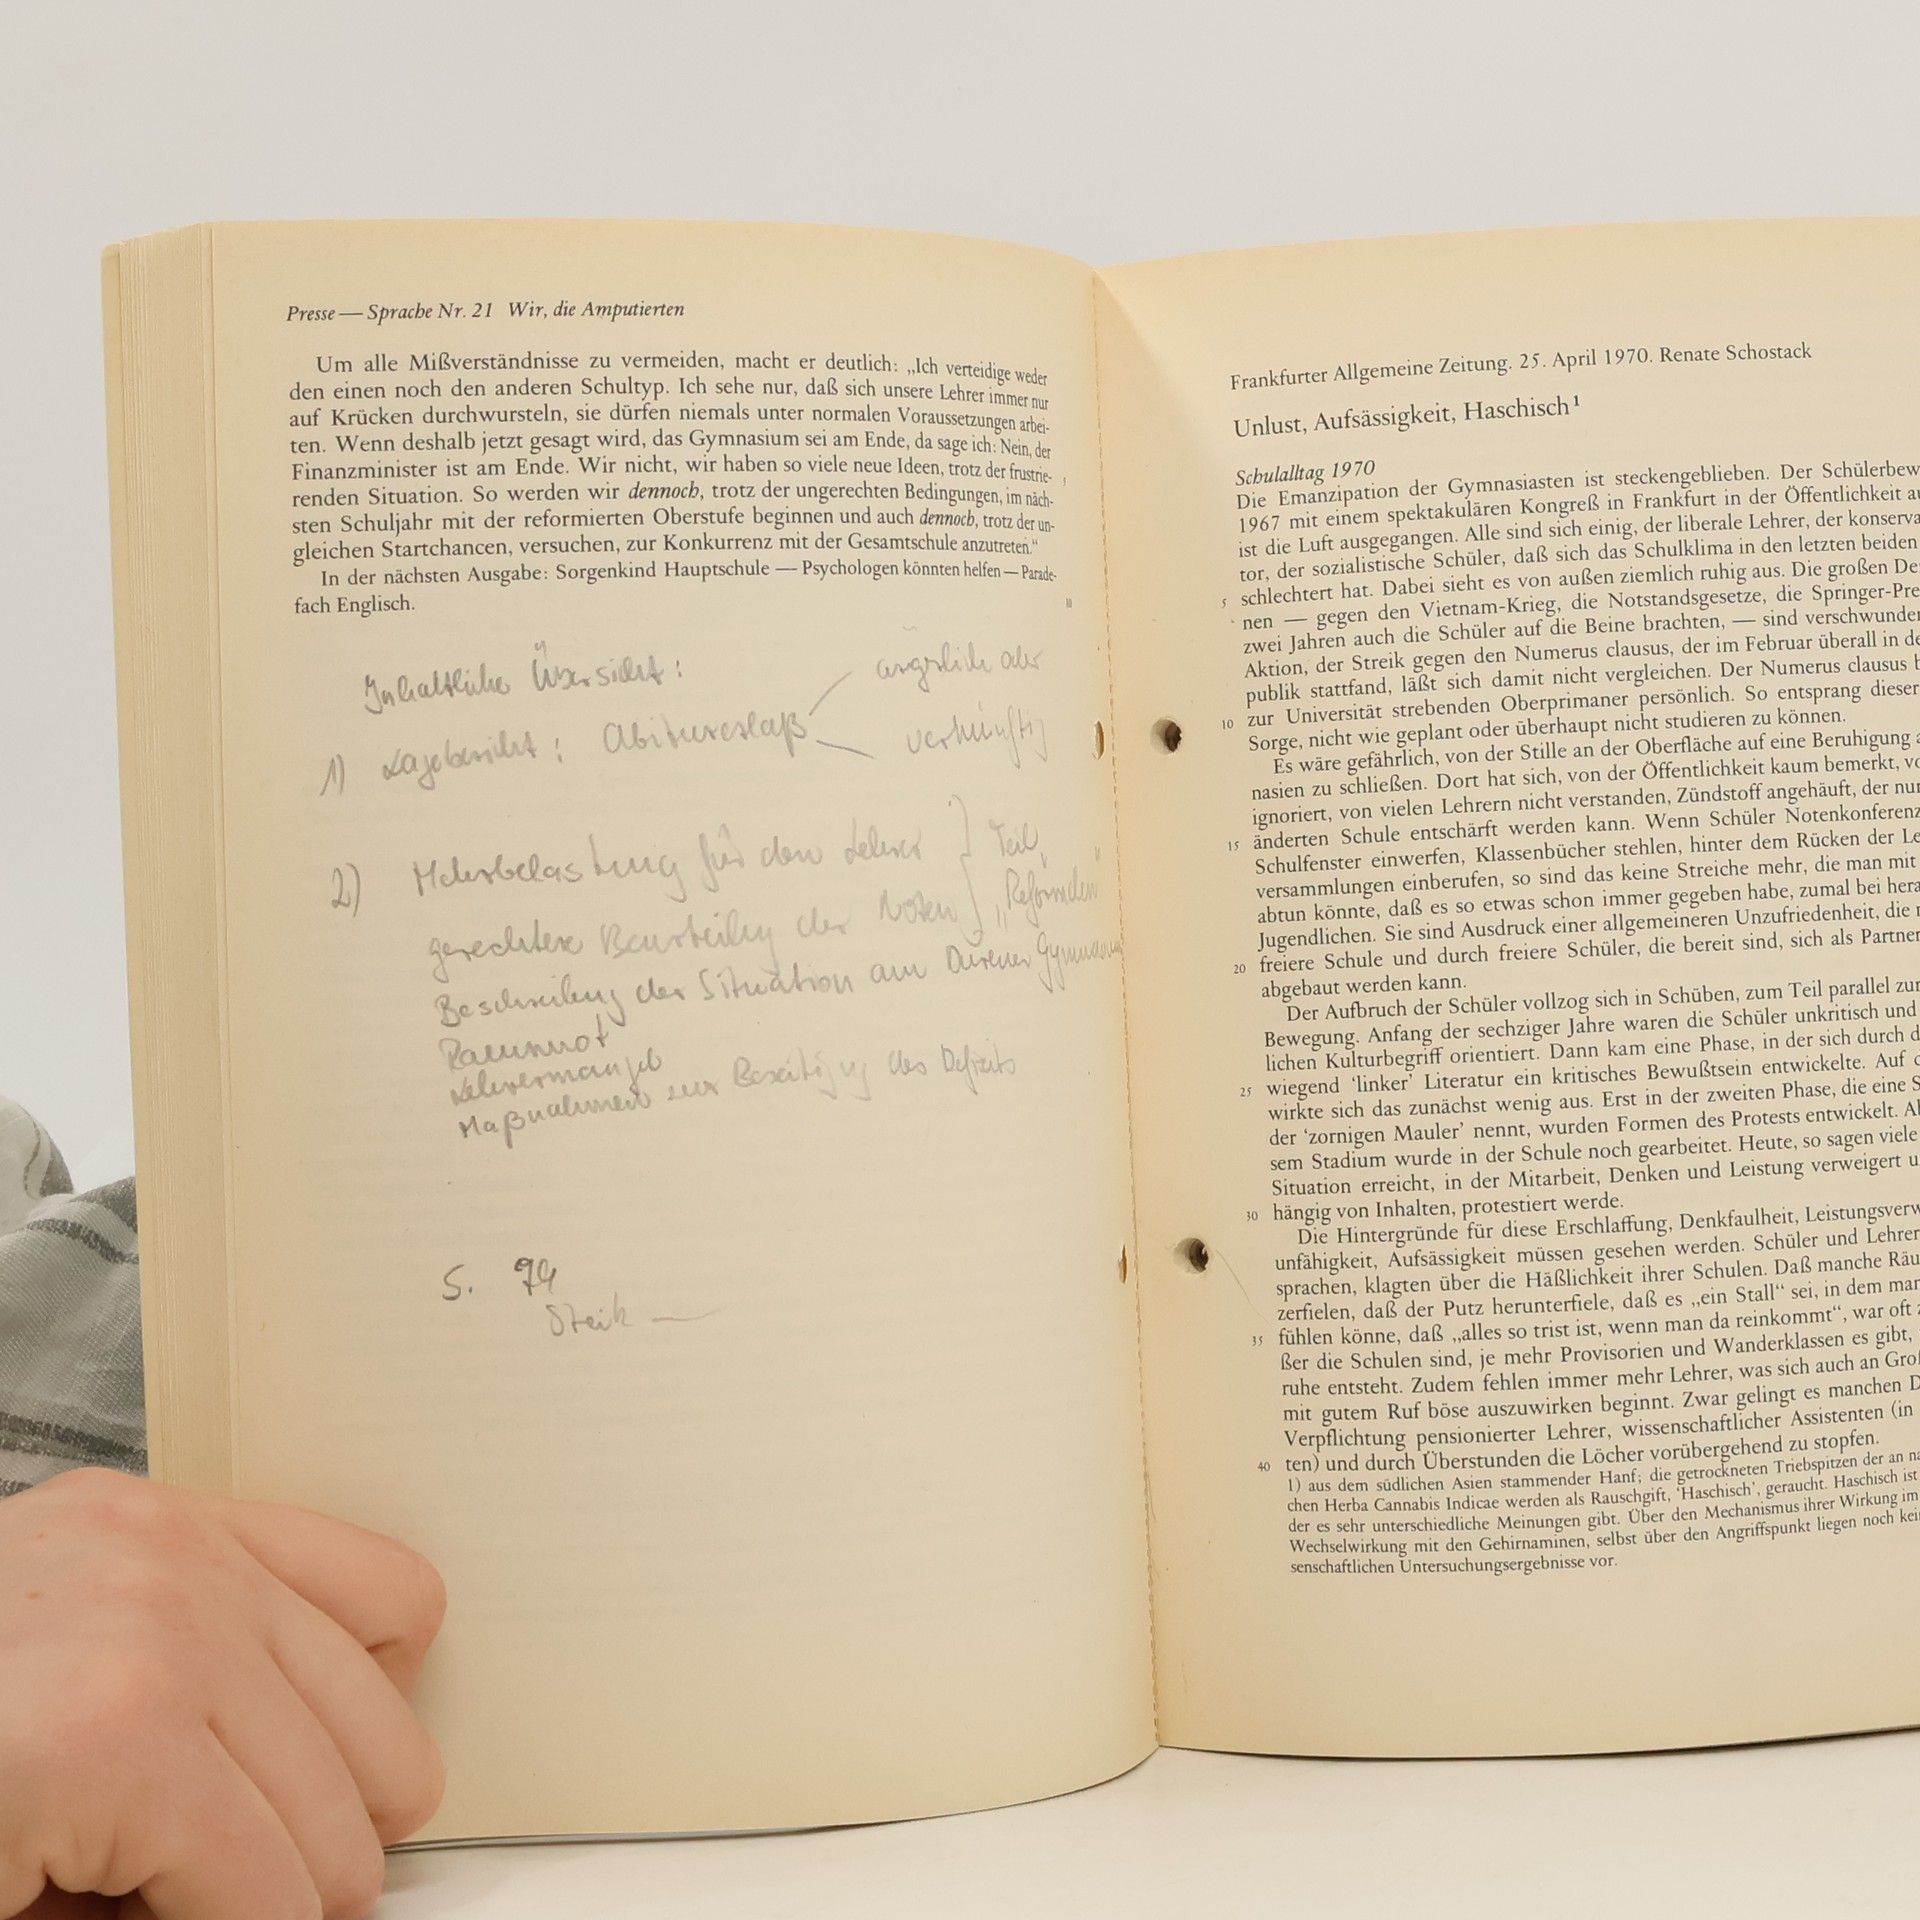 Presse — Sprache Nr. 21 Wir, die Amputierten
Um alle Mißverständnisse zu vermeiden, macht er deutlich: „Ich verteidige weder
den einen noch den anderen Schultyp. Ich sehe nur, daß sich unsere Lehrer immer nur
auf Krücken durchwursteln, sie dürfen niemals unter normalen Voraussetzungen arbei-
ten. Wenn deshalb jetzt gesagt wird, das Gymnasium sei am Ende, da sage ich: Nein, der
Finanzminister ist am Ende. Wir nicht, wir haben so viele neue Ideen, trotz der frustrie-
renden Situation. So werden wir dennoch, trotz der ungerechten Bedingungen, im näch-
sten Schuljahr mit der reformierten Oberstufe beginnen und auch dennoch, trotz der un-
gleichen Startchancen, versuchen, zur Konkurrenz mit der Gesamtschule anzutreten.“
In der nächsten Ausgabe: Sorgenkind Hauptschule — Psychologen könnten helfen — Parade-
fach Englisch.
Inhaltliche Übersicht:
1) Lagebericht: Abiturerlaß
oder
vernünftig
2) Mehrbelastung für den Lehrer } Teil
gerechtere Beurteilung der Noten
Beschreibung der Situation am Gymnasium
Raumnot
Lehrermangel
Maßnahmen zur Beseitigung des Defizits
S. 74
Streik —
Frankfurter Allgemeine Zeitung. 25. April 1970. Renate Schostack
Unlust, Aufsässigkeit, Haschisch¹
Schulalltag 1970
Die Emanzipation der Gymnasiasten ist steckengeblieben. Der Schülerbew
1967 mit einem spektakulären Kongreß in Frankfurt in der Öffentlichkeit au
ist die Luft ausgegangen. Alle sind sich einig, der liberale Lehrer, der konserva
tor, der sozialistische Schüler, daß sich das Schulklima in den letzten beiden
5 schlechtert hat. Dabei sieht es von außen ziemlich ruhig aus. Die großen De
nen — gegen den Vietnam-Krieg, die Notstandsgesetze, die Springer-Pre
zwei Jahren auch die Schüler auf die Beine brachten, — sind verschwunden
Aktion, der Streik gegen den Numerus clausus, der im Februar überall in de
publik stattfand, läßt sich damit nicht vergleichen. Der Numerus clausus b
10 zur Universität strebenden Oberprimaner persönlich. So entsprang dieser
Sorge, nicht wie geplant oder überhaupt nicht studieren zu können.
Es wäre gefährlich, von der Stille an der Oberfläche auf eine Beruhigung a
nasien zu schließen. Dort hat sich, von der Öffentlichkeit kaum bemerkt, vo
ignoriert, von vielen Lehrern nicht verstanden, Zündstoff angehäuft, der nur
15 änderten Schule entschärft werden kann. Wenn Schüler Notenkonferenz
Schulfenster einwerfen, Klassenbücher stehlen, hinter dem Rücken der Le
versammlungen einberufen, so sind das keine Streiche mehr, die man mit
abtun könnte, daß es so etwas schon immer gegeben habe, zumal bei hera
Jugendlichen. Sie sind Ausdruck einer allgemeineren Unzufriedenheit, die n
20 freiere Schule und durch freiere Schüler, die bereit sind, sich als Partner
abgebaut werden kann.
Der Aufbruch der Schüler vollzog sich in Schüben, zum Teil parallel zur
Bewegung. Anfang der sechziger Jahre waren die Schüler unkritisch und
lichen Kulturbegriff orientiert. Dann kam eine Phase, in der sich durch d
25 wiegend ‘linker’ Literatur ein kritisches Bewußtsein entwickelte. Auf d
wirkte sich das zunächst wenig aus. Erst in der zweiten Phase, die eine S
der ‘zornigen Mauler’ nennt, wurden Formen des Protests entwickelt. Ab
sem Stadium wurde in der Schule noch gearbeitet. Heute, so sagen viele
Situation erreicht, in der Mitarbeit, Denken und Leistung verweigert u
30 hängig von Inhalten, protestiert werde.
Die Hintergründe für diese Erschlaffung, Denkfaulheit, Leistungsverw
unfähigkeit, Aufsässigkeit müssen gesehen werden. Schüler und Lehrer
sprachen, klagten über die Häßlichkeit ihrer Schulen. Daß manche Räu
zerfielen, daß der Putz herunterfiele, daß es „ein Stall“ sei, in dem man
35 fühlen könne, daß „alles so trist ist, wenn man da reinkommt“, war oft z
ßer die Schulen sind, je mehr Provisorien und Wanderklassen es gibt,
ruhe entsteht. Zudem fehlen immer mehr Lehrer, was sich auch an Groß
mit gutem Ruf böse auszuwirken beginnt. Zwar gelingt es manchen D
Verpflichtung pensionierter Lehrer, wissenschaftlicher Assistenten (in
40 ten) und durch Überstunden die Löcher vorübergehend zu stopfen.
1) aus dem südlichen Asien stammender Hanf; die getrockneten Triebspitzen der an na
chen Herba Cannabis Indicae werden als Rauschgift, ‘Haschisch’, geraucht. Haschisch ist
der es sehr unterschiedliche Meinungen gibt. Über den Mechanismus ihrer Wirkung im
Wechselwirkung mit den Gehirnaminen, selbst über den Angriffspunkt liegen noch kei
senschaftlichen Untersuchungsergebnisse vor.